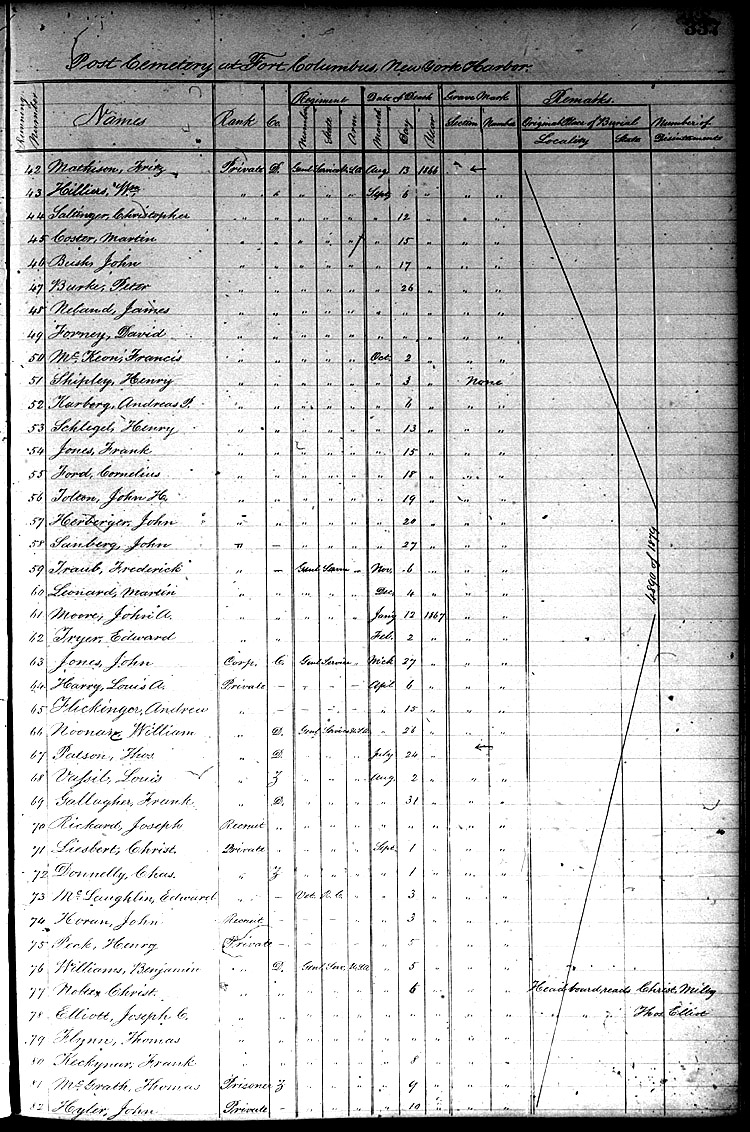 337
Post Cemetery at Fort Columbus, New York Harbor.
Running Number Names Rank Co. Regiment Number State Arm Date of Death Month Day Year Grave Mark Section Number Remarks. Original Place of Burial Locality State Number of Disinterments
42 Mathison, Fritz Private D. Genl Service U.S.A. Aug 13 1866 "
43 Hilliers, Wm " " " " " Septr 6 " " "
44 Saltinger, Christopher " " " " " " 12 " " "
45 Coster, Martin " " " " " " 15 " " "
46 Bush, John " " " " " " 17 " " "
47 Burke, Peter " " " " " " 26 " " "
48 Neland, James " " " " " " " " " "
49 Forney, David " " " " " " " " " "
50 McKeon, Francis " " " " " Oct. 2 " " "
51 Shipley, Henry " " " " " " 3 " None
52 Karberg, Andreas P. " " " " " " 6 " " "
53 Schlegel, Henry " " " " " " 13 " " "
54 Jones, Frank " " " " " " 15 " " "
55 Ford, Cornelius " " " " " " 18 " " "
56 Tolten, John H. " " " " " " 19 " " "
57 Herberger, John " " " " " " 20 " " "
58 Sanberg, John " – " " " " 27 " " "
59 Traub, Frederick " – Genl Service " Nov. 6 " " "
60 Leonard, Martin " " " " " Dec. 4 " " "
61 Moore, John A. " " " " " Jany 12 1867 " "
62 Tryer, Edward " " " " " Feb. 2 " " "
63 Jones, John Corp. C. Genl Service – Mch 27 " " "
64 Harry, Louis A. Private – – – – April 6 " " "
65 Flickinger, Andrew " – – – – " 15 " " "
66 Noonan, William " D. Genl Service U.S.A. " 26 " " "
67 Patson, Thos " D. " " " July 24 " "
68 Vassil, Louis " Z " " " Aug. 2 " " "
69 Gallagher, Frank " D. " " " " 31 " " "
70 Rickard, Joseph Recruit " " " " " " " " "
71 Liesbert, Christ. Private " " " " Sept. 1 " " "
72 Donnelly, Chas. " Z " " " " 1 " " "
73 McLaughlin, Edward " – Vet. R. C. " " 3 " " "
74 Horan, John Recruit – – – – " 3 " " "
75 Peck, Henry Private – – – – " 5 " " "
76 Williams, Benjamin " D. Genl Serv. U.S.A. " 5 " " "
77 Christ. " " " " " " 6 " " " Headboard reads Christ. Miley
78 Elliott, Joseph C. " " " " " " " " " " " " Thos Elliot
79 Flynn, Thomas " " " " " " " " " "
80 Keckynar, Frank " " " " " " 8 " " "
81 McGrath, Thomas Prisoner Z " " " " 9 " " "
82 Hyler, John Private – " " " " 10 " " "
4890 of 1879